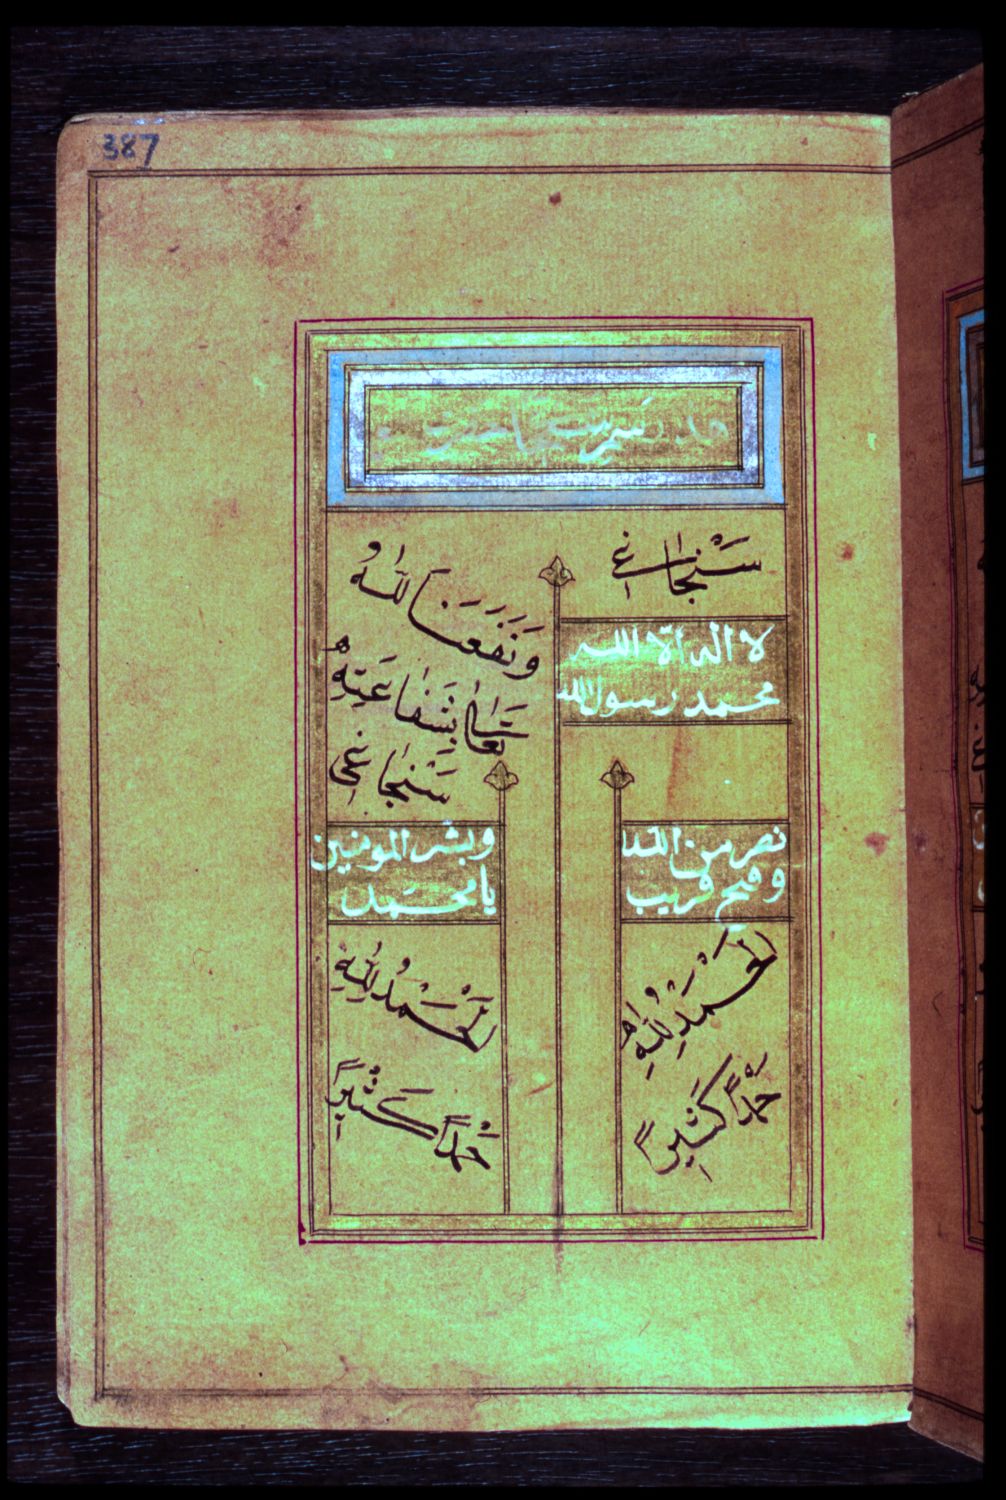 387
سَنْجَاغى
لا اله الا الله
محمد رسول الله
وَنَفَعَنَا اللهُ
تَعَالٰى بِشَفَاعَتِهِ
سَنْجَاغى
نصر من الله
وفتح قريب
وبشر المومنين
يا محمد
الْحَمْدُ لِلّٰهِ
حَمْدًا كَثِيرًا
الْحَمْدُ لِلّٰهِ
حَمْدًا كَثِيرًا